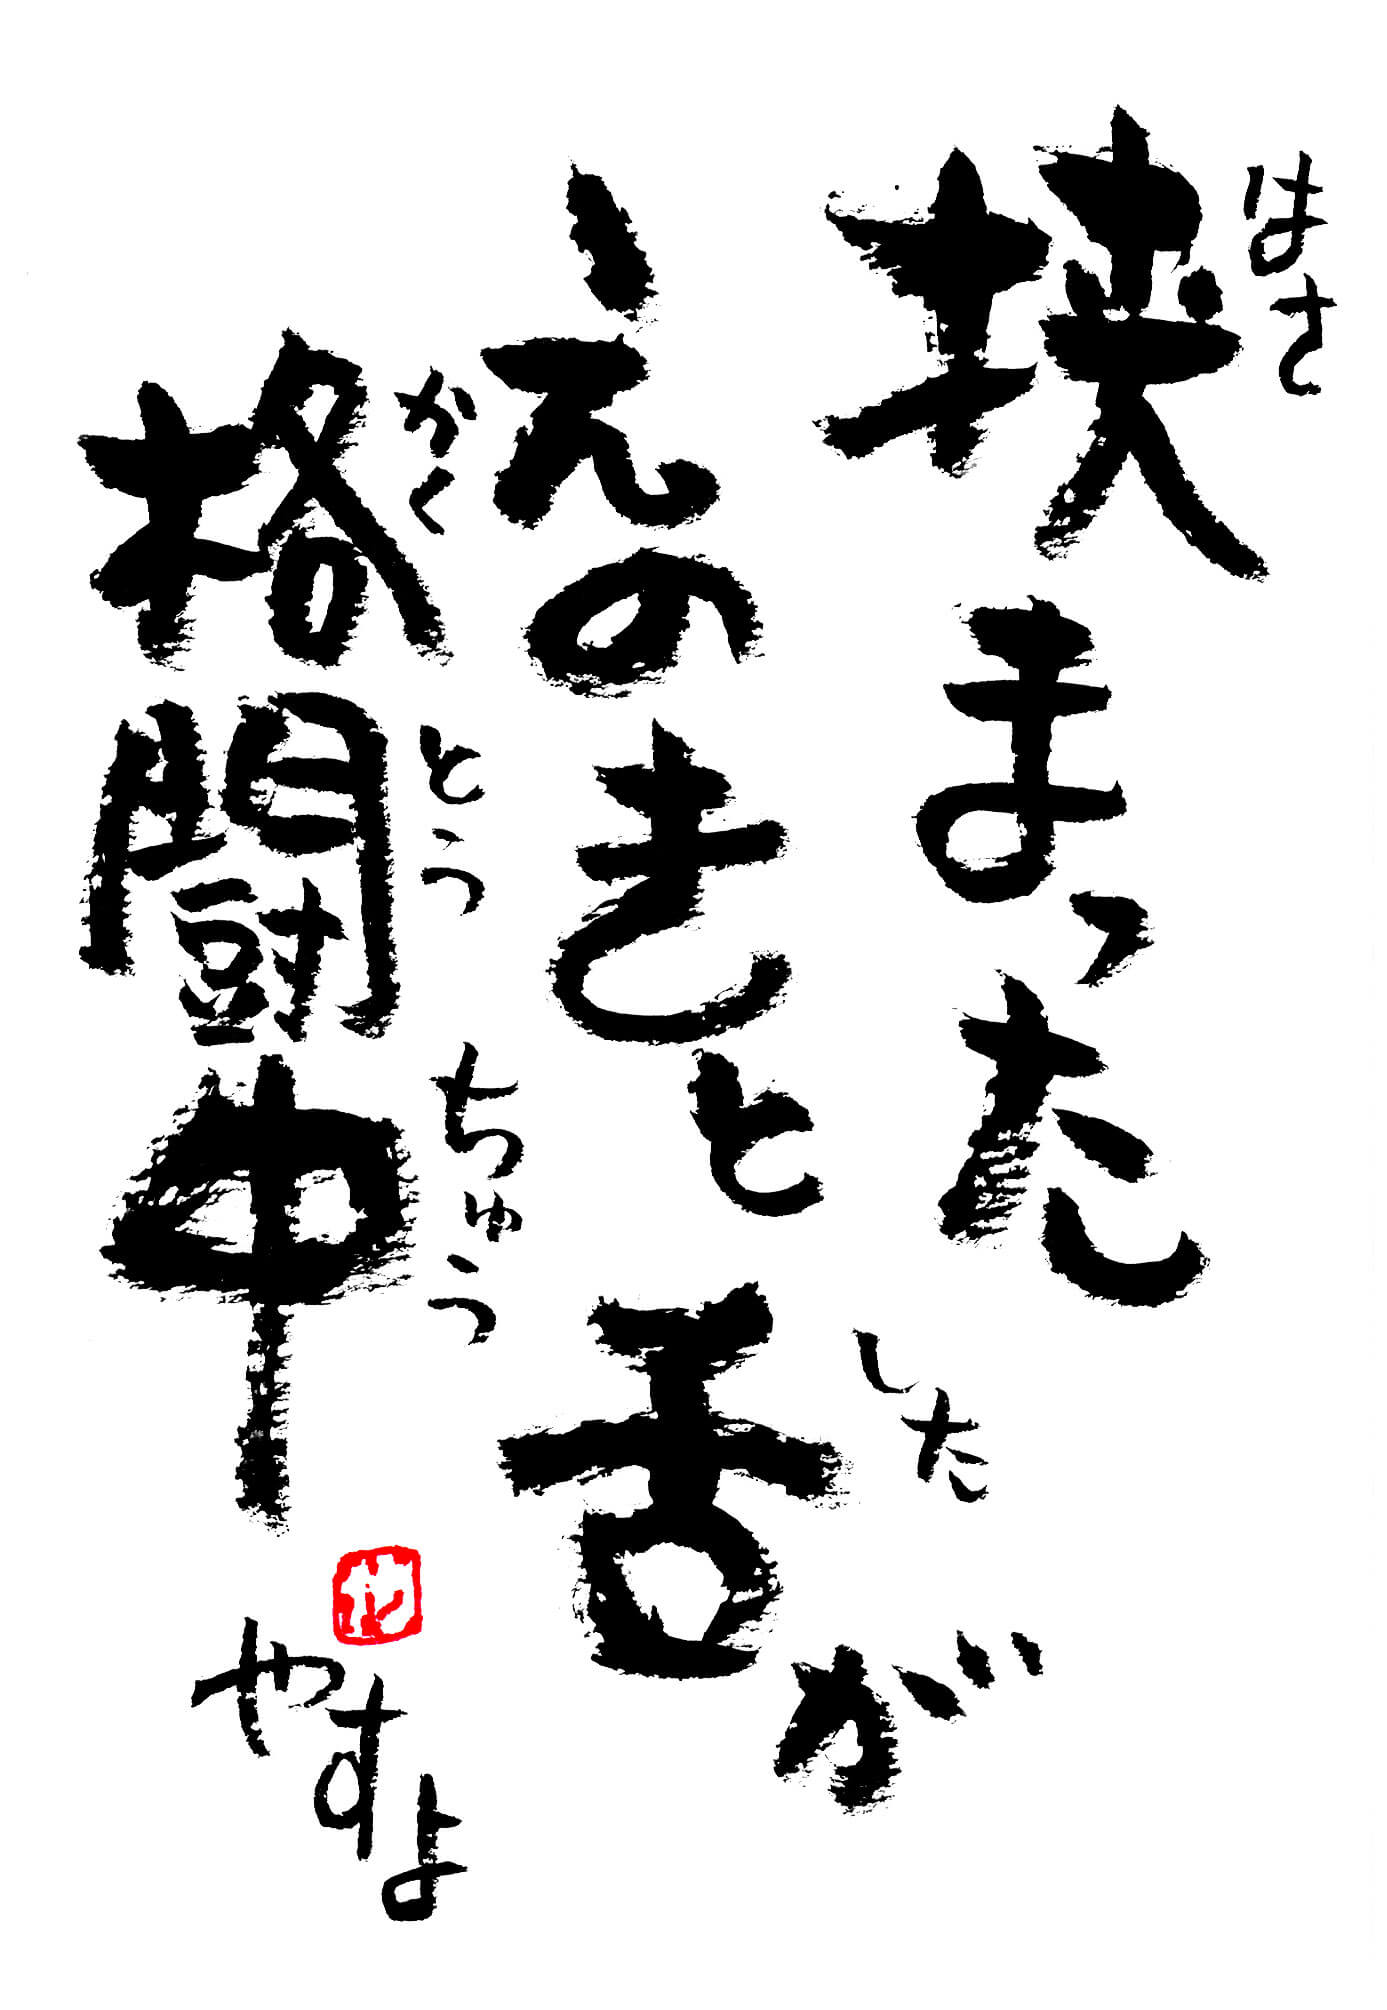 挟まった
はさ
えのきと舌が
した
格闘中
かくとうちゅう
やすよ